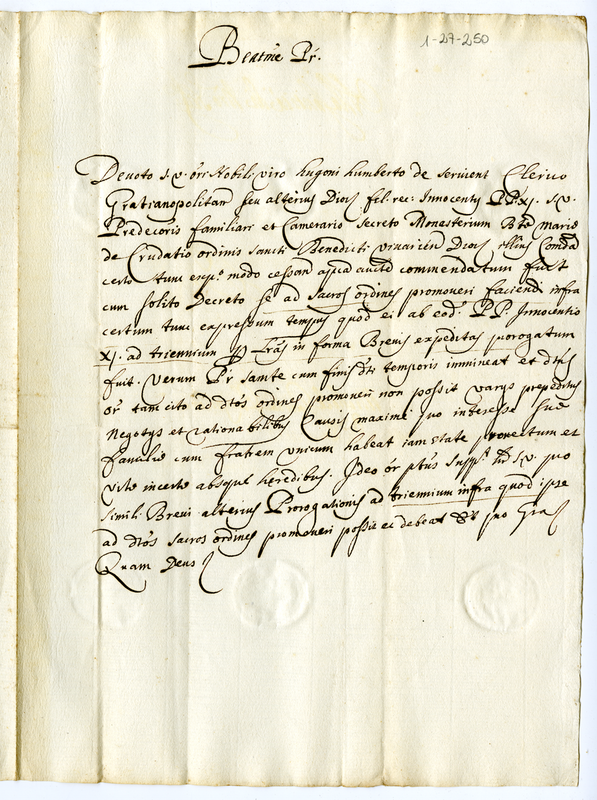 1-27-250
Beatme Pr.
Devoto s.v. óri Nobili viro hugoni humberto de servient Clerico
Gratianopolitan seu alterius Dioc fel: rec: Innocenty PP. xj. s.v.
Predecoris familiari et Camerario secreto Monasterium Marie
de ordinis sancti Benedicti Dioc
certo tunc modo cessan commendatum fuit
cum solito Decreto se ad sacros ordines promoveri faciendi infra
certum tunc expressum tempus quod ei ab eod. P.P. Innocentio
xj. ad triennium Lras in forma Brevis expeditas prorogatum
fuit. Verum Pr sancte cum finis dti temporis immineat et dtus
ór tam cito ad dtos ordines promoveri non possit varys prepeditus
Negotys et rationabilibus Causis maxime pro interesse sue
familie cum fratrem unicum habeat iam etate provectum et
vite incerte absque heredibus. Ideo ór ptus supp.t s.v. pro
simili Brevi alterius Prorogationis ad triennium infra quod ipse
ad dtos sacros ordines promoveri possit et debeat pro Gra
Quam Deus